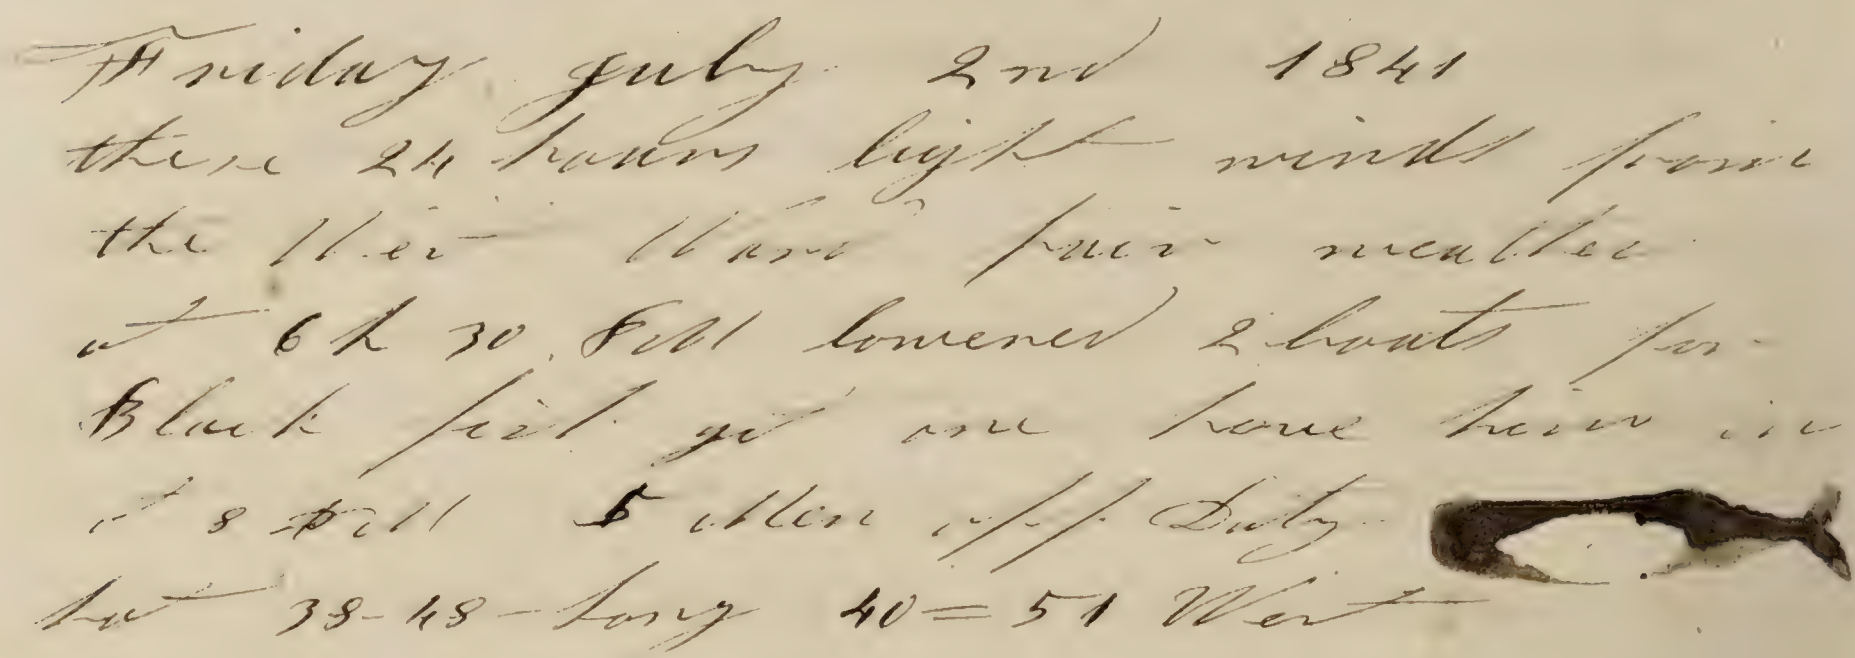 Friday July 2nd 1841
these 24 hours light winds from
the West Ward fair weather
at 6 h 30 P M lowered 2 boats for
Black fish got one have him in
at 8 P M 5 Men off Duty
Lat 38-48- Long 40=51 West